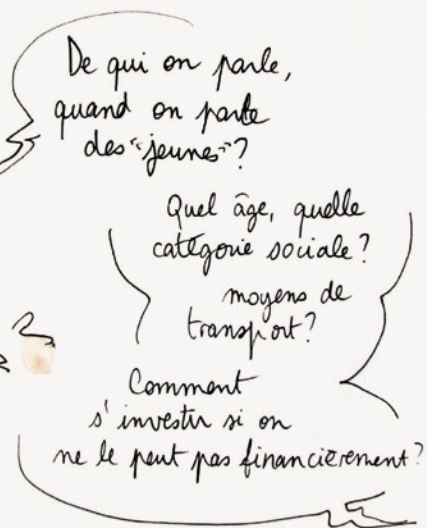 De qui on parle,
quand on parle
des "jeunes"?
Quel âge, quelle
catégorie sociale?
moyens de
transport?
Comment
s'investir si on
ne le peut pas financièrement?